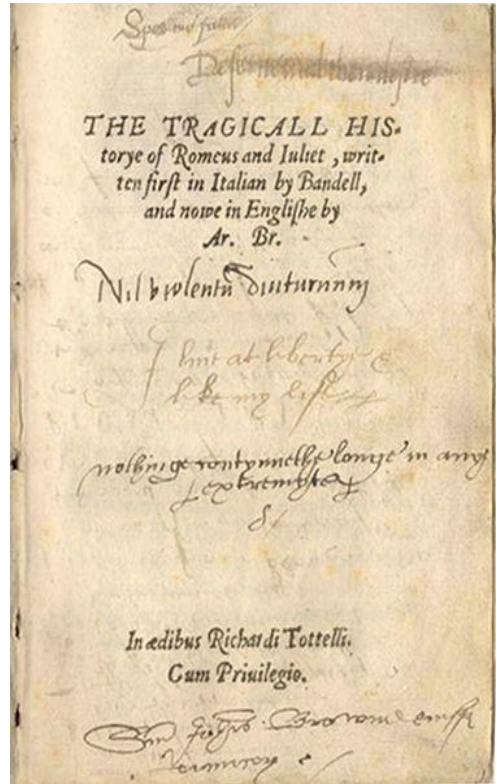 Spes me
THE TRAGICALL HIS-
torye of Romeus and Iuliet, writ-
ten first in Italian by Bandell,
and nowe in Englishe by
Ar. Br.
Nil violentũ diuturnum
I liue at libertye &
like my life
nothinge contynnethe longe in any
extremytex
In ædibus Richardi Tottelli.
Cum Priuilegio.